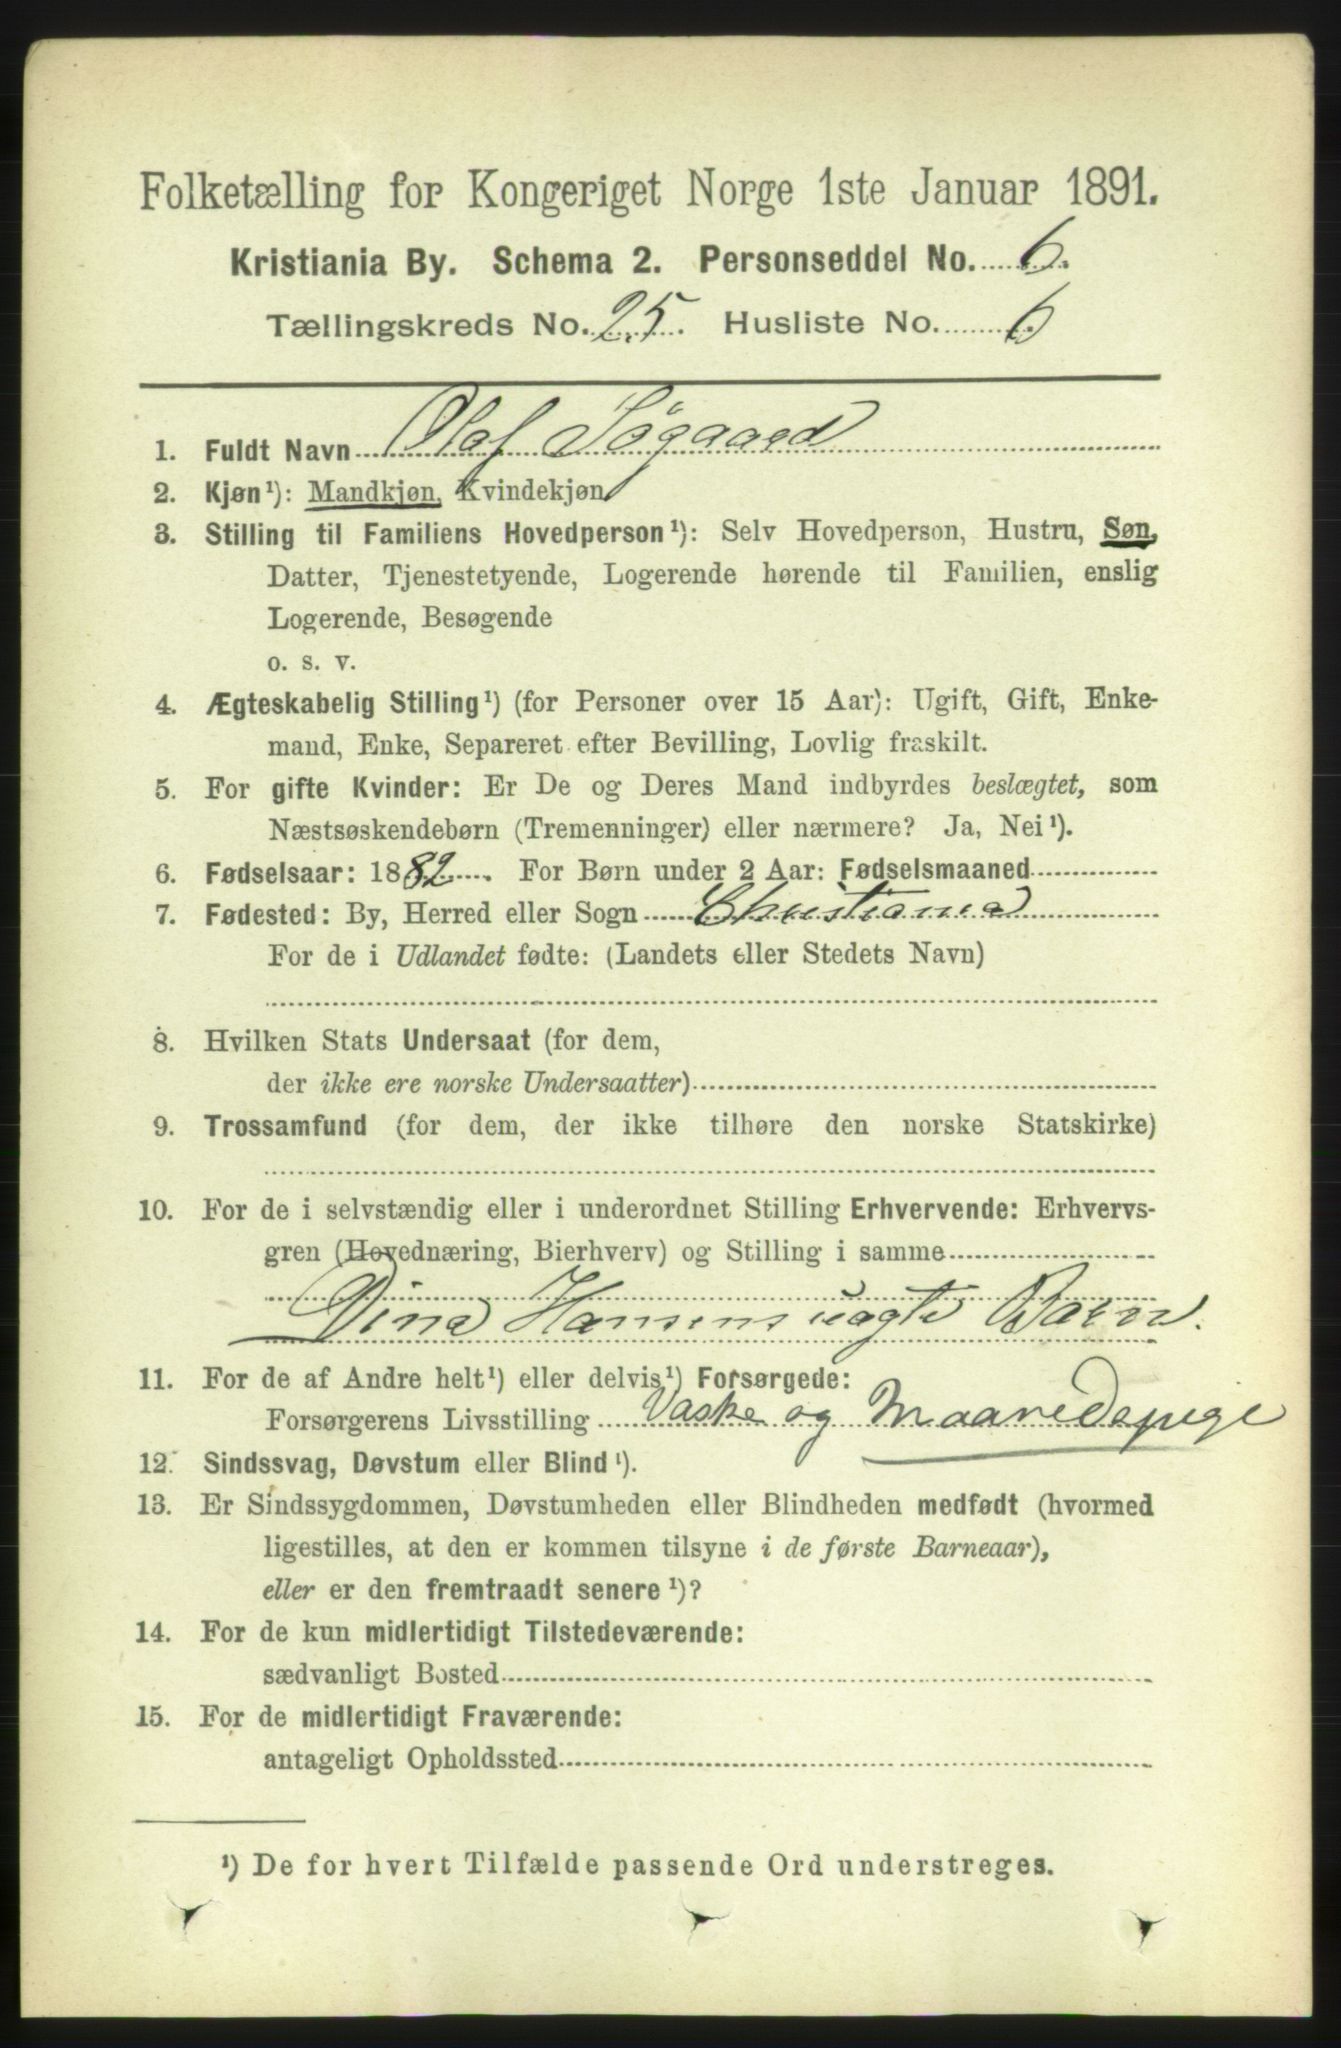 Folketælling for Kongeriget Norge 1ste Januar 1891.
Kristiania By. Schema 2. Personseddel No. 6.
Tællingskreds No. 25. Husliste No. 6
1. Fuldt Navn Olaf Søgaard
2. Kjøn¹): Mandkjøn, Kvindekjøn
3. Stilling til Familiens Hovedperson¹): Selv Hovedperson, Hustru, Søn,
Datter, Tjenestetyende, Logerende hørende til Familien, enslig
Logerende, Besøgende
o. s. v.
4. Ægteskabelig Stilling¹) (for Personer over 15 Aar): Ugift, Gift, Enke-
mand, Enke, Separeret efter Bevilling, Lovlig fraskilt.
5. For gifte Kvinder: Er De og Deres Mand indbyrdes beslægtet, som
Næstsøskendebørn (Tremenninger) eller nærmere? Ja, Nei¹).
6. Fødselsaar: 1882. For Børn under 2 Aar: Fødselsmaaned
7. Fødested: By, Herred eller Sogn Christiania
For de i Udlandet fødte: (Landets eller Stedets Navn)
8. Hvilken Stats Undersaat (for dem,
der ikke ere norske Undersaatter)
9. Trossamfund (for dem, der ikke tilhøre den norske Statskirke)
10. For de i selvstændig eller i underordnet Stilling Erhvervende: Erhvervs-
gren (Hovednæring, Bierhverv) og Stilling i samme
Dina Hansens uægte Barn.
11. For de af Andre helt¹) eller delvis¹) Forsørgede:
Forsørgerens Livsstilling Vaske og Maanedspige
12. Sindssvag, Døvstum eller Blind¹).
13. Er Sindssygdommen, Døvstumheden eller Blindheden medfødt (hvormed
ligestilles, at den er kommen tilsyne i de første Barneaar),
eller er den fremtraadt senere¹)?
14. For de kun midlertidigt Tilstedeværende:
sædvanligt Bosted
15. For de midlertidigt Fraværende:
antageligt Opholdssted
¹) De for hvert Tilfælde passende Ord understreges.